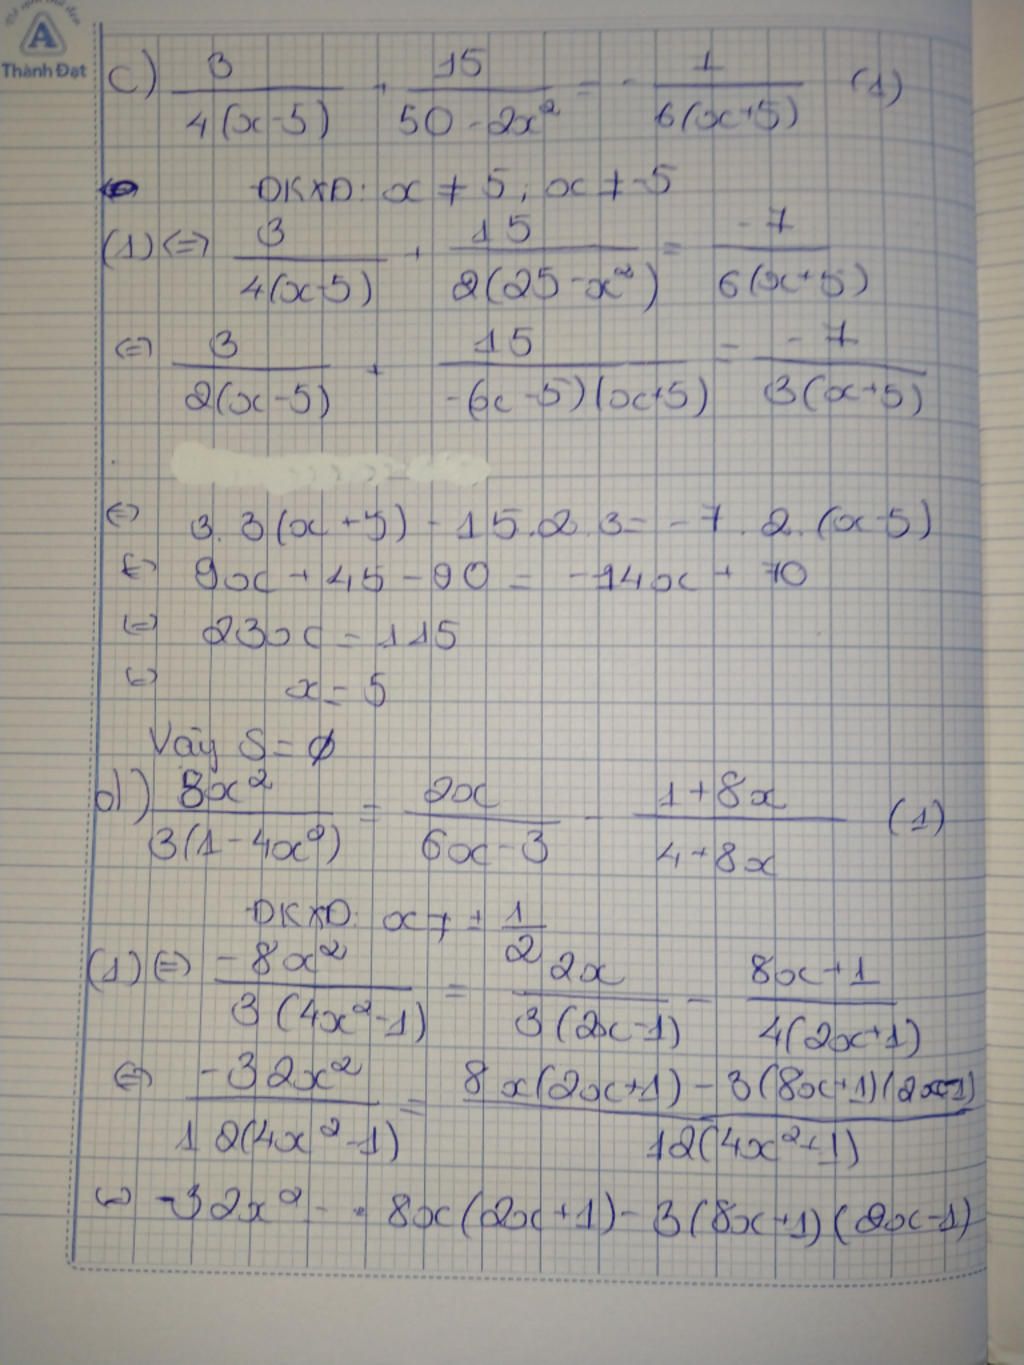 Thành Đạt
c) 3/4(x-5) + 15/50-2x² = - 1/6(x+5) (1)
ĐKXĐ: x ≠ 5; x ≠ -5
(1) <=> 3/4(x-5) + 15/2(25-x²) = -7/6(x+5)
<=> 3/2(x-5) + 15/-(x-5)(x+5) = -7/3(x+5)
<=> 3.3(x+5) - 15.2.3 = -7.2.(x-5)
<=> 9x + 45 - 90 = -14x + 70
<=> 23x = 115
<=> x = 5
Vậy S = ∅
d) 8x²/3(1-4x²) = 2x/6x-3 - 1+8x/4+8x (1)
ĐKXĐ: x ≠ ± 1/2
(1) <=> -8x²/3(4x²-1) = 2x/3(2x-1) - 8x+1/4(2x+1)
<=> -32x²/12(4x²-1) = 8x(2x+1) - 3(8x+1)(2x-1)/12(4x²+1)
<=> -32x² = 8x(2x+1) - 3(8x+1)(2x-1)